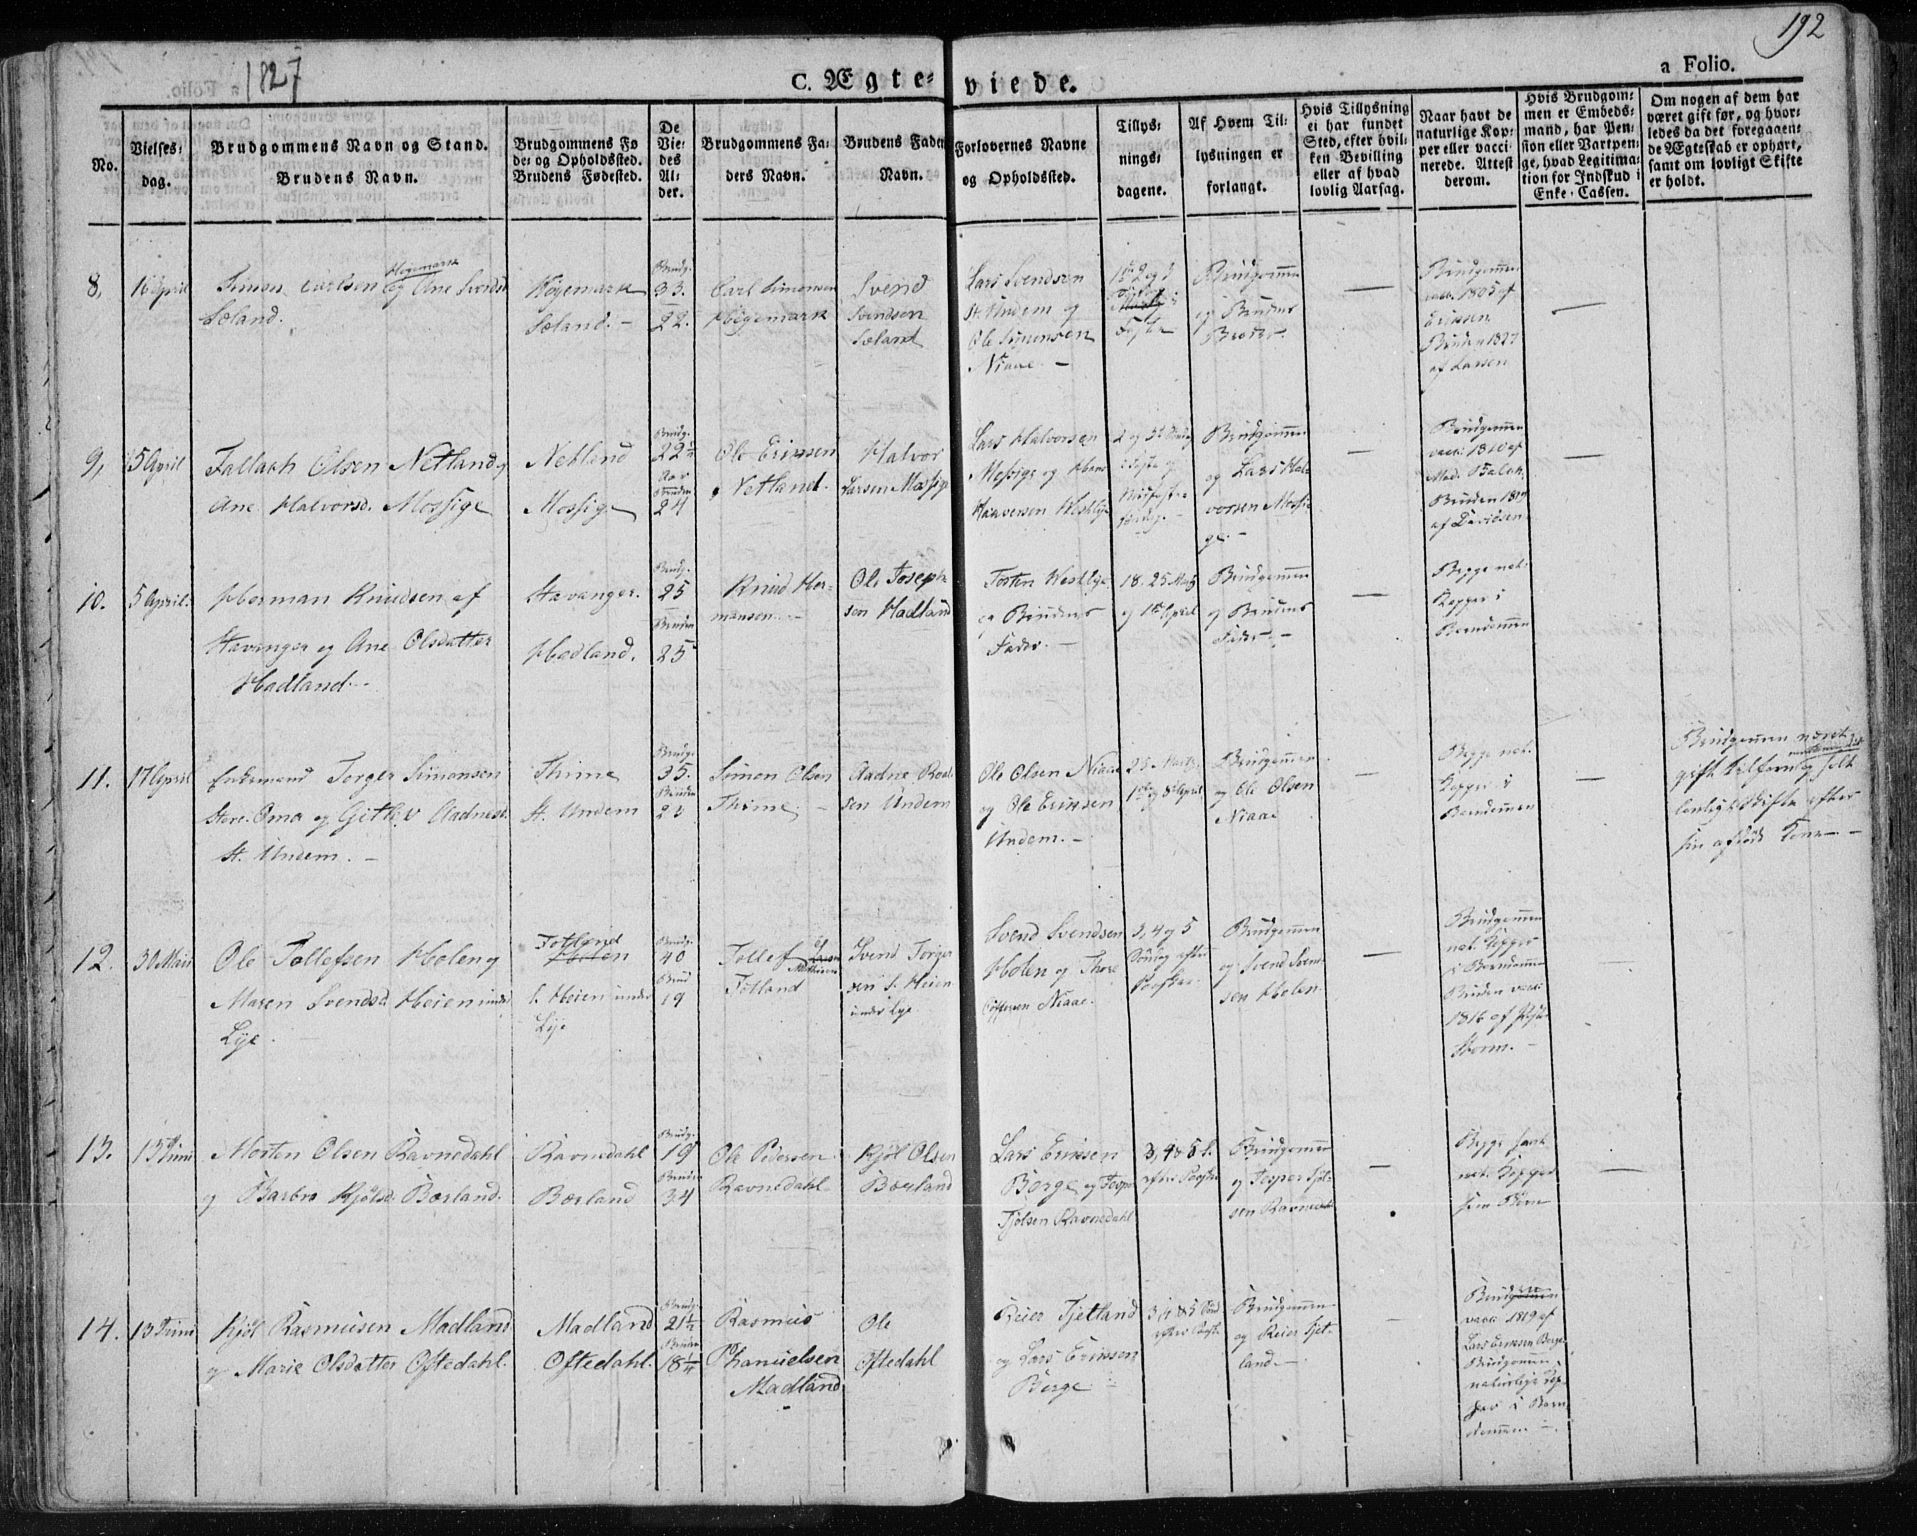 192
1827
C. Ægteviede.
a Folio.
No.
Vielses-
dag.
Brudgommens Navn og Stand.
Brudens Navn.
Brudgommens Fø
de- og Opholdssted.
Brudens Fødested.
De
Vie-
des
Al-
der.
Brudgommens Fa-
ders Navn.
Brudens Faders
Navn.
Forlovernes Navne
og Opholdssted.
Tillys-
nings-
dagene.
Af Hvem Til-
lysningen er
forlangt.
Hvis Tillysning
ei har fundet
Sted, efter hvil-
ken Bevilling
eller af hvad
lovlig Aarsag.
Naar havt de
naturlige Kop-
per eller vacci-
nerede. Attest
derom.
Hvis Brudgom-
men er Embeds-
mand, har Pen-
sion eller Vartpen-
ge, hvad Legitima-
tion for Indskud i
Enke-Cassen.
Om nogen af dem har
været gift før, og hvor-
ledes da det foregaaen-
de Ægteskab er ophørt,
samt om lovligt Skifte
er holdt.
8,
16 April
Høgemark
Simon Carlsen og Ane Svendsd.
Sæland.
Høgemark
Sæland. -
Brudg.
33.
22.
Carl Simonsen
Høgemark
Svend
Svendsen
Sæland
Lars Svendsen
St. Undem og
Ole Simensen
Niaae. -
Brudgommen
og Brudens
Broder.
Brudgommen
vacc. 1805 af
Eriksen
Bruden 1827
af Larsen
9,
5 April
Tallach Olsen Netland og
Ane Halvorsd. Mossige
Netland
Mossige
Brudg.
22½
Aar
Bruden
24
Ole Erinsen
Netland.
Halvor
Larsen Mossige
Lars Halvorsen
Mossige og Hans
Haaversen Westlye
Brudgommen
og Lars Hal-
vorsen Mossi-
ge. -
Brudgommen
vacc. 1810 af
Mad. Balch,
Bruden
af Davidsen
10.
5 April.
Herman Knudsen af
Stavanger og Ane Olsdatter
Hadland. -
Stavanger.
Hadland.
Brudg.
25
Bruden
25
Knud Her-
mansen. -
Ole Joseph-
sen Hadland
Torsten Westlye
og Brudens
Fader. -
18. 25 Marts
og 1ste April
Brudgommen
og Brudens
Fader. -
Begge nat.
Kopper i
Barndommen
11.
17 April
Enkemand Torger Simonsen
Store Oma og Gitlev Aadnesd.
St. Undem. -
Thime
St. Undem
Brudg.
35.
Bruden
23
Simon Olsen
Thime. -
Aadne Roal-
sen Undem
Ole Olsen Niaae
og Ole Erinsen
Undem. -
25 Marts
1ste og 8de April
Brudgommen
og Ole Olsen
Niaae
Begge nat.
Kopper i
Barndommen
Brudgommen været
gift tilforn og holdt
lovligt Skifte efter
sin afdøde Kone -
12.
30 Mai
Ole Tollefsen Holen og
Maren Svendsd. Heien under
Lye.
Fotland
Holen
l. Heien under
Lye
Brudg.
40
Brud
19
Tollef
Fotland
Svend Torger
sen l. Heien
under Lye
Svend Svendsen
Holen og Thore
Niaae.
3, 4 og 5
Søndag efter
Paaske.
Brudgommen
og Svend Svend-
sen Holen
Brudgommen
nat. Kopper
i Barndommen
Bruden vacc.
1816 af
Storm. -
13.
13 Juni
Morten Olsen Ravnedahl
og Barbro Kjølsd. Børland.
Ravnedahl
Børland
Brudg.
19
Bruden
34
Ole Pedersen
Ravnedahl
Kjøl Olsen
Børland
Lars Erinsen
Børge og Jesper
Tjølsen Ravnedahl
3, 4 & 5 S.
efter Paaske
Brudgommen
og Jesper Tjøl-
sen Ravnedal
Begge havt
nat. Kopper
14.
13 Juni
Kjøl Rasmusen Madland
og Marie Olsdatter Oftedahl.
Madland
Oftedahl.
Brudg.
21½
Bruden
18¼
Rasmus
Phanuelsen
Madland
Ole
Oftedahl
Reier Tjetland
og Lars Erinsen
Børge -
3, 4 & 5 Sønd
efter Paask.
Brudgommen
og Reier Tjet-
land. -
Bruden
vacc. 1819 af
Lars Erinsen Børge
Brudgommen
naturlige Kop-
per i Barn-
dommen. -